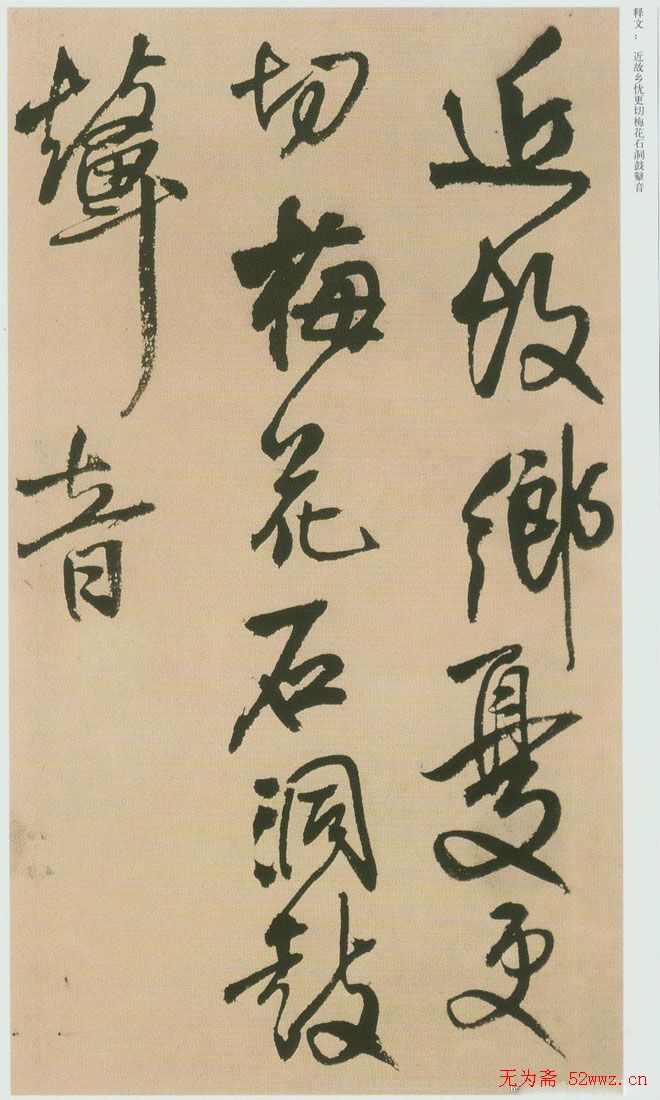 释文： 近故乡忧更切梅花石洞鼓鼙音
近故鄉憂更
切梅花石洞鼓
鼙音
无为斋 52wwz.cn